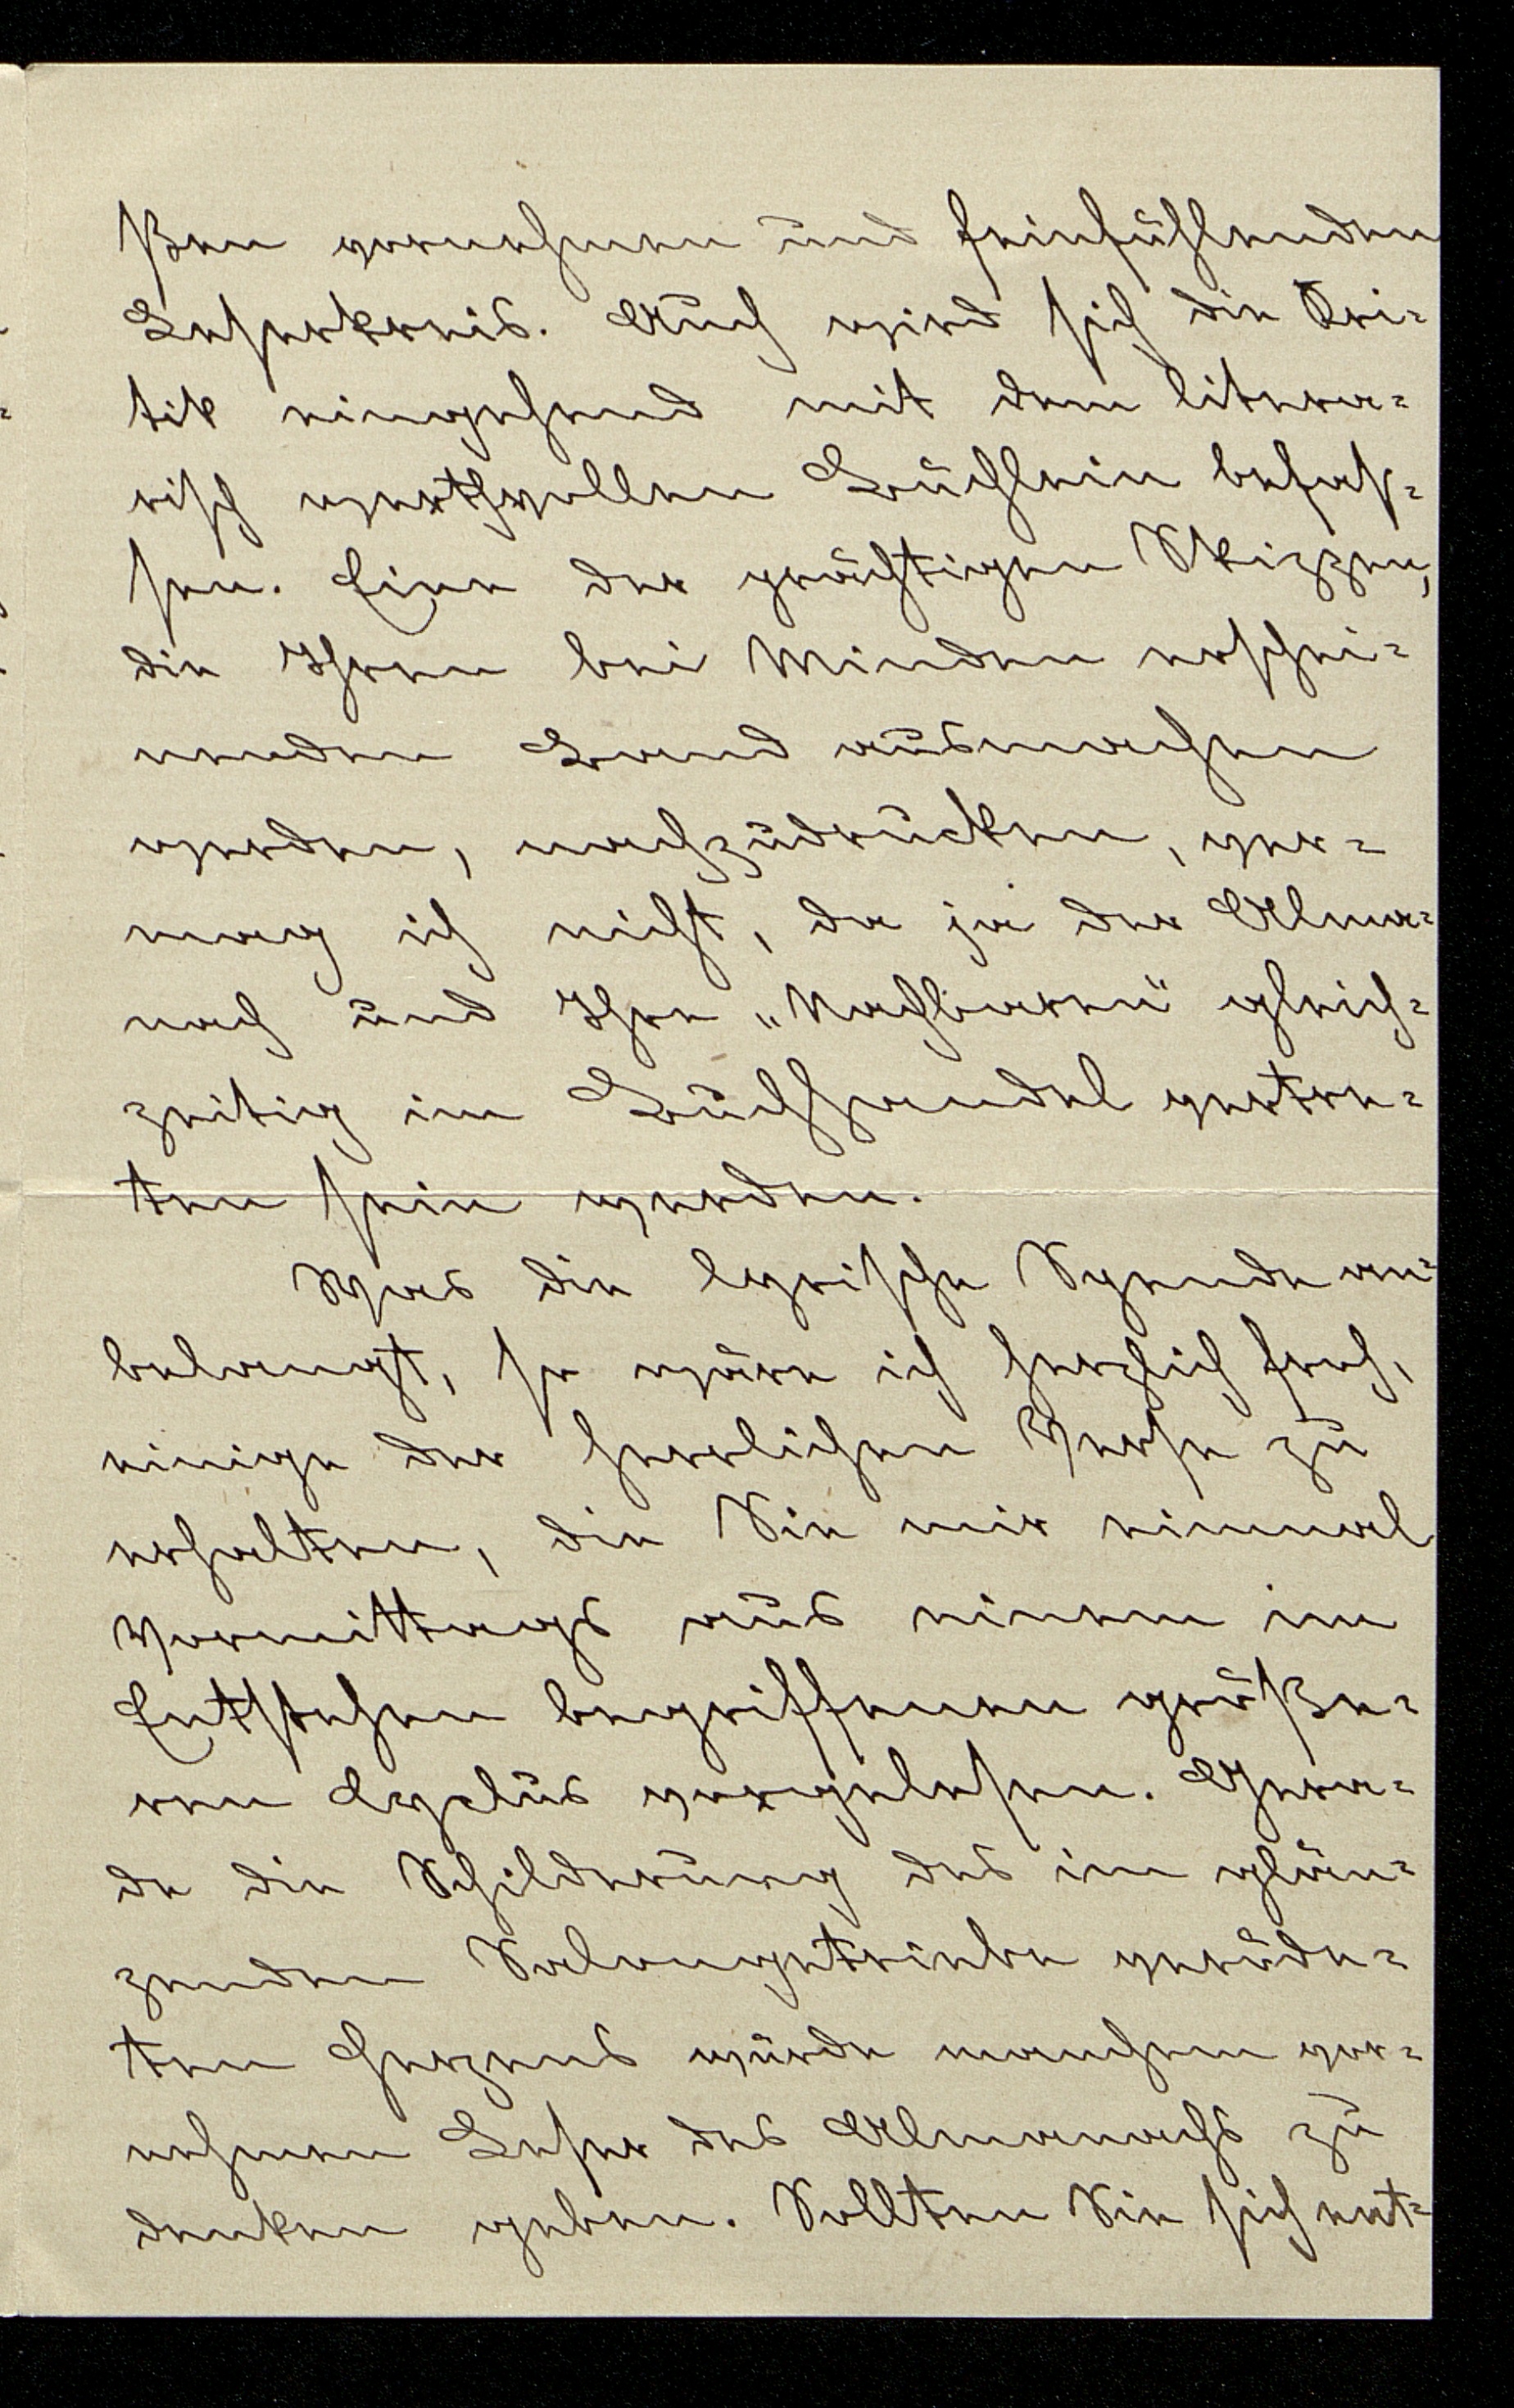 ßen vornehmen und feinfühlenden
Leserkreis. Auch wird sich die Kri-
tik eingehend mit dem litera-
risch werthvollen Büchlein befas-
sen. Eine der prächtigen Skizzen,
die Ihren bei Minden erschei-
nenden Band ausmachen
werden, nachzudrucken, ver-
mag ich nicht, da ja der Alma-
nach und Ihre „Nachbarn“ gleich-
zeitig im Buchhandel vertre-
ten sein werden.
Was die lyrische Spende an-
belangt, so wäre ich herzlich froh,
einige der herrlichen Verse zu
erhalten, die Sie mir einmal
Vormittags aus einem im
Entstehen begriffenen größe-
ren Cyclus vorgelesen. Gera-
de die Schilderung des im glän-
zenden Salongetriebe veröde-
ten Herzens würde manchem vor-
nehmen Leser des Almanachs zu
denken geben. Sollten Sie sich ent-